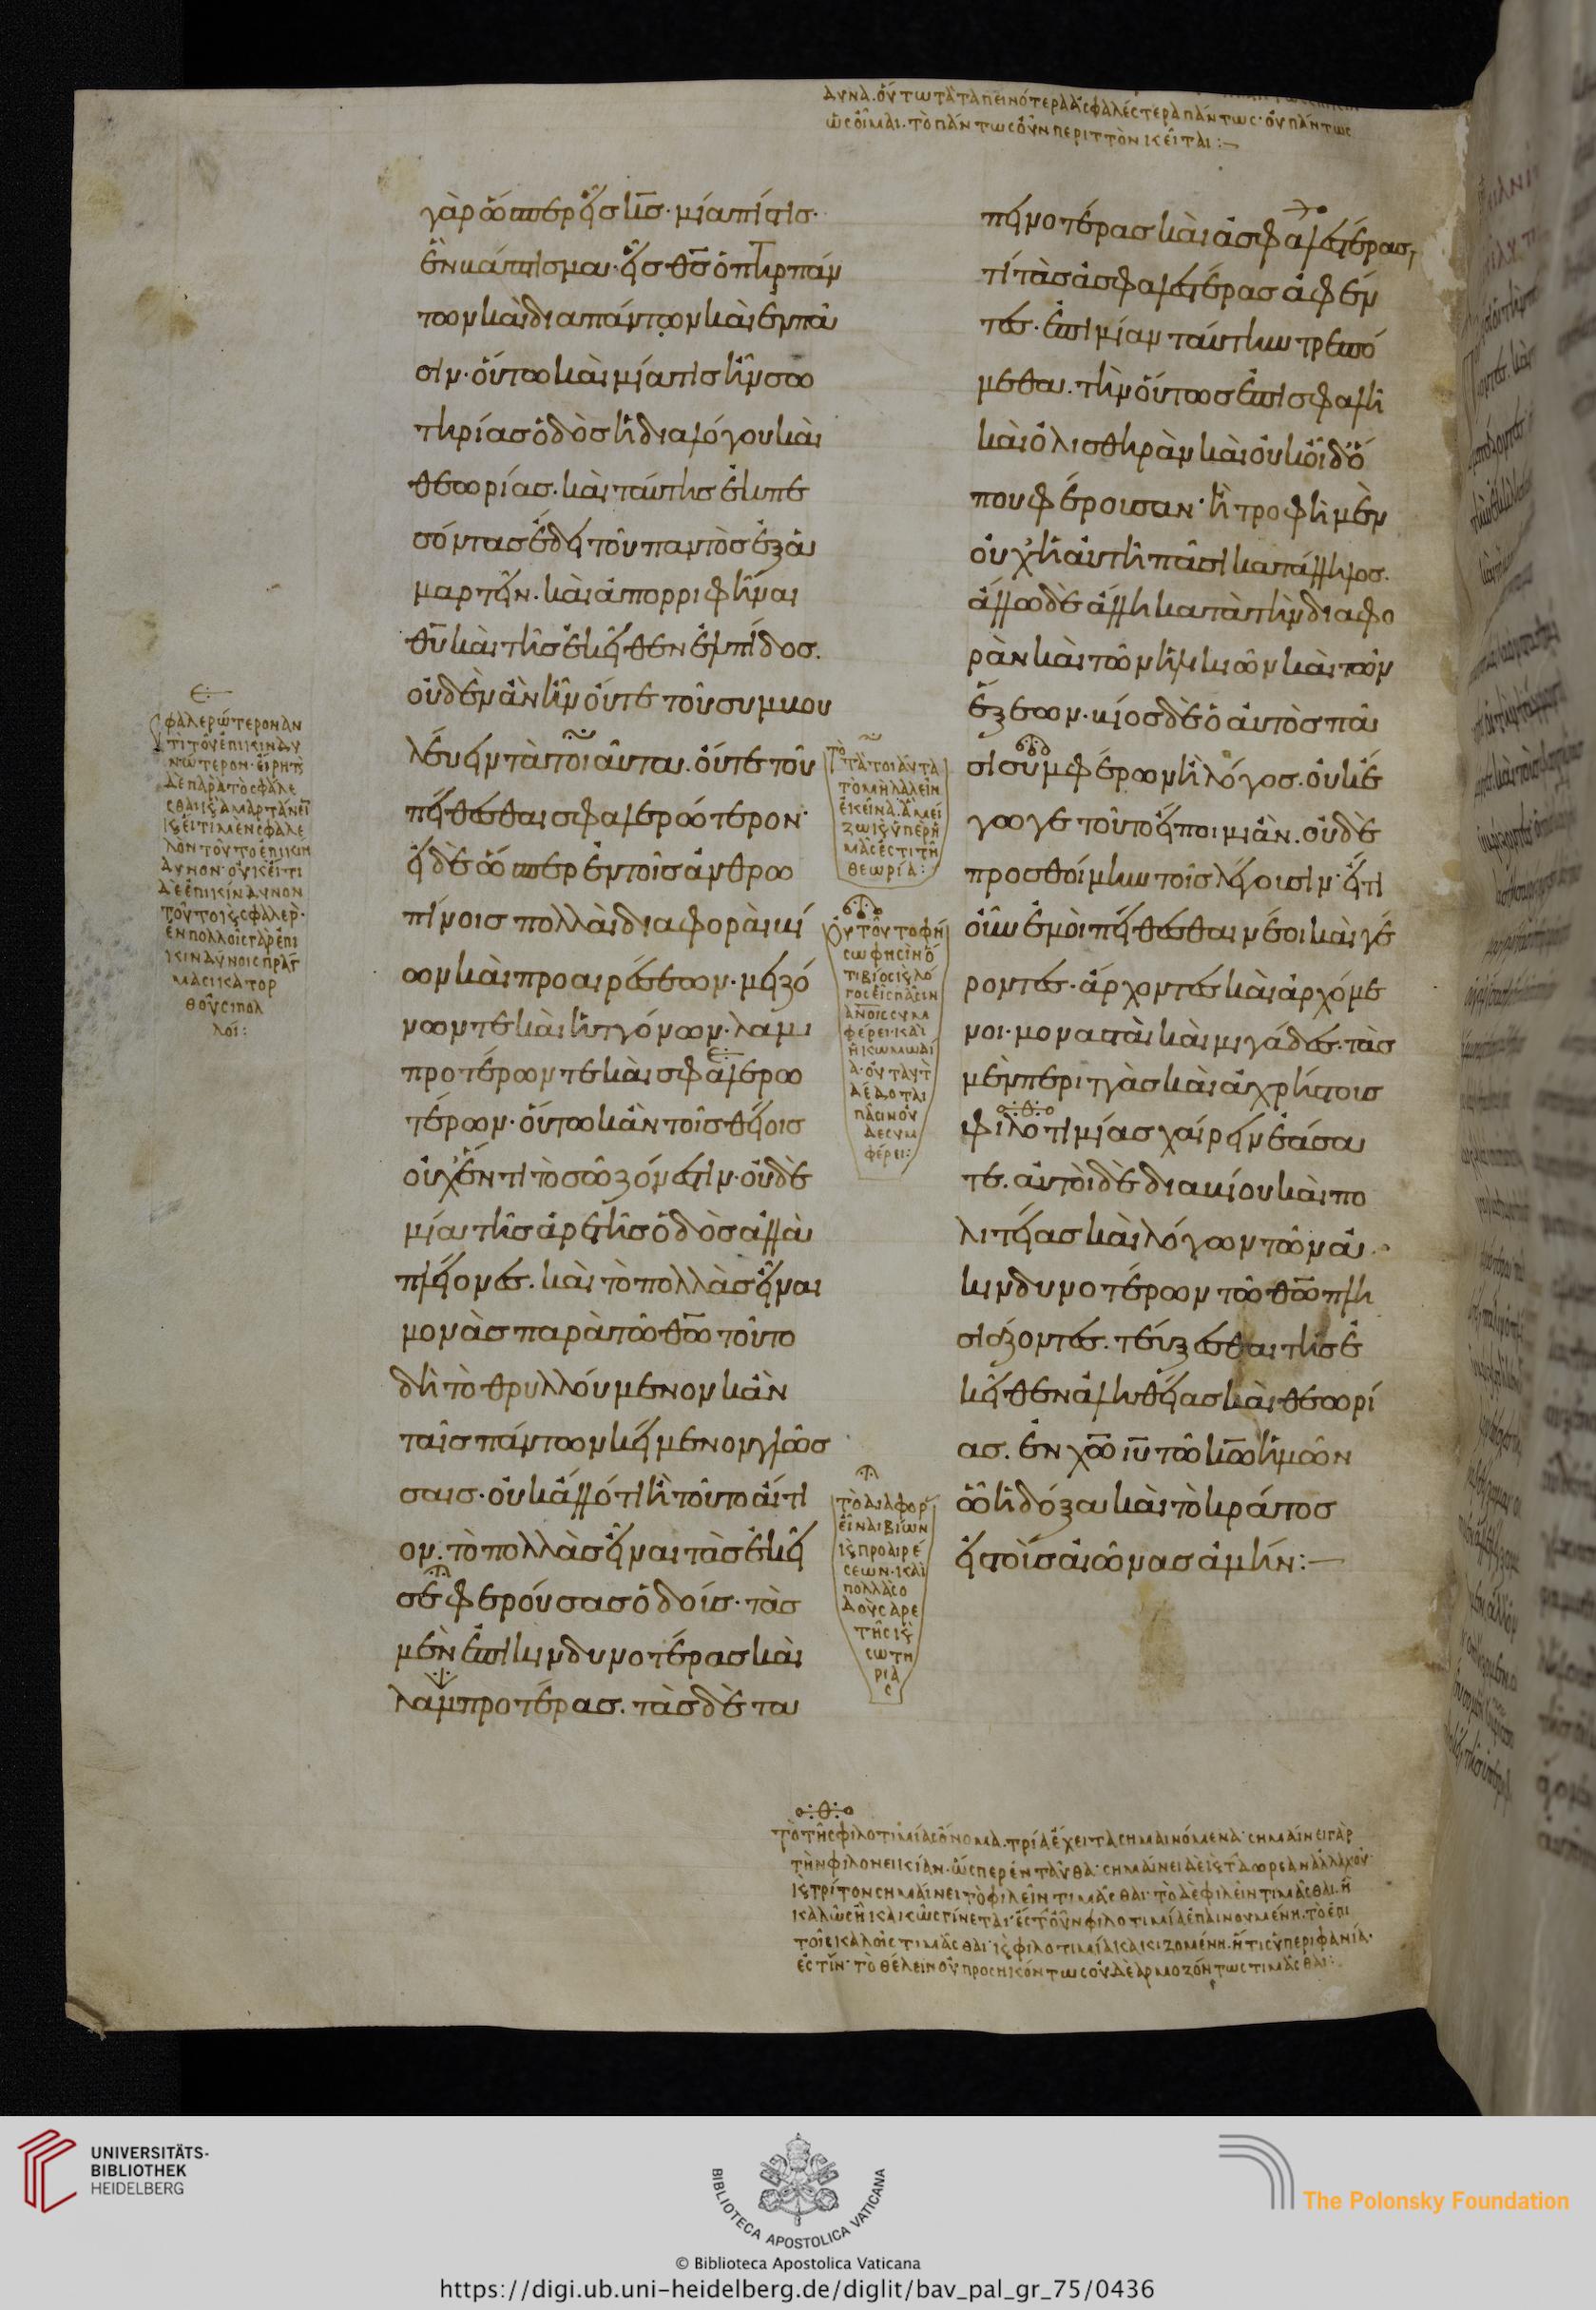 αυνα. οὕτω τὰ ταπεινότερα ἀσφαλέστερα πάντως· οὐ πάντως
ὡς οἶμαι. τὸ πάντως οὖν περιττὸν κεῖται :—
γὰρ ὥσπερ εἷς κ̅ς̅· μία πίστις·
ἓν βάπτισμα· εἷς θ̅ς̅ ὁ π̅η̅ρ̅ πάν
των καὶ διὰ πάντων καὶ ἐν πᾶ
σιν· οὕτω καὶ μία τις ἦν σω
τηρίας ὁδὸς ἡ διὰ λόγου καὶ
θεωρίας. καὶ ταύτης ἐκπε
σόντας ἔδει τοῦ παντὸς ἐξα
μαρτεῖν. καὶ ἀπορριφῆναι
θ̅υ̅ καὶ τῆς ἐκεῖθεν ἐλπίδος.
οὐδὲν ἂν ἦν οὔτε τοῦ συμβου
λεύειν τὰ τοιαῦτα. οὔτε τοῦ
πείθεσθαι σφαλερώτερον·
εἰ δὲ ὥσπερ ἐν τοῖς ἀνθρω
πίνοις πολλαὶ διαφοραὶ βί
ων καὶ προαιρέσεων· μειζό
νων τε καὶ ἡττόνων· λαμ
προτέρων τε καὶ σφαλερω
τέρων· οὕτω κἂν τοῖς θείοις
οὐχ ἕν τι τὸ σῶζόν ἐστιν· οὐδὲ
μία τῆς ἀρετῆς ὁδὸς ἀλλὰ
πλείονες. καὶ τὸ πολλὰς εἶναι
μονὰς παρὰ τῶ θ̅ω̅ τοῦτο
δὴ τὸ θρυλλούμενον κἂν
ταῖς πάντων κείμενον γλώσ
σαις· οὐκ ἄλλό τι ἢ τοῦτο αἴτι
ον. τὸ πολλὰς εἶναι τὰς ἐκεῖ
σε φερούσας ὁδούς· τὰς
μὲν ἐπικινδυνοτέρας καὶ
λαμπροτέρας. τὰς δὲ τα
πεινοτέρας καὶ ἀσφαλεστέρας,
τί τὰς ἀσφαλεστέρας ἀφέν
τες. ἐπὶ μίαν ταύτην τρεπό
μεθα. τὴν οὕτως ἐπισφαλῆ
καὶ ὀλισθηρὰν καὶ οὐκ οἶδ' ὅ
που φέρουσαν· ἢ τροφὴ μὲν
οὐχ ἡ αὐτὴ πᾶσι κατάλληλος.
ἄλλω δὲ ἄλλη κατὰ τὴν διαφο
ρὰν καὶ τῶν ἡλικιῶν καὶ τῶν
ἕξεων. βίος δὲ ὁ αὐτὸς πᾶ
σι συμφέρων ἢ λόγος. οὐκ ἔ
γωγε τοῦτο εἴποιμι ἄν. οὐδὲ
προσθοίμην τοῖς λέγουσιν· εἴ τι
οὖν ἐμοὶ πείθεσθαι νέοι καὶ γέ
ροντες. ἄρχοντες καὶ ἀρχόμε
νοι. μονασταὶ καὶ μιγάδες. τὰς
μὲν περιττὰς καὶ ἀχρήστους
φιλοτιμίας χαίρειν ἐάσα
τε. αὐτοὶ δὲ διὰ βίου καὶ πο
λιτείας καὶ λόγων τῶν ἀ
κινδυνοτέρων τῶ θ̅ω̅ πλη
σιάζοντες. τεύξεσθαι τῆς ἐ
κεῖθεν ἀληθείας καὶ θεωρί
ας. ἐν χ̅ω̅ ι̅υ̅ τῶ κ̅ω̅ ἡμῶν
ὧ ἡ δόξα καὶ τὸ κράτος
εἰς τοὺς αἰῶνας ἀμήν:—
φαλερώτερον ἀν
τὶ τοῦ ἐπικινδυ
νώτερον· εἴρητ
δὲ παρὰ τὸ σφάλε
σθαι κ ἁμαρτάνει
κ εἴ τι μὲν σφαλε
λὸν τοῦτο ἐπικιν
δυνον· οὐκ εἴ τι
δὲ ἐπικίνδυνον
τοῦτο κ σφαλερ·
ἐν πολλοῖς γὰρ ἐπι
κινδύνοις πράγ
μασι κατορ
θοῦσι πολ
λοί:
τὸ
τὰ τοιαῦτα
τὸ μὴ λαλεῖν
ἐκεῖνα. ἃ μεί
ζω κ ὑπὲρ ἡ
μᾶς ἐστι τῆ
θεωρία:
οὐ τοῦτο φη
σω φησιν ὅ
τι βίος κ λό
γος εἷς πᾶσιν
ἀ̅ν̅οις συμ
φέρει· καὶ
ἡ κωμωδί
α. οὐ ταὐτ
δέδοται
πᾶσιν οὐ
δὲ συμ
φέρει:
τὸ διάφορ
εἶναι βίων
κ προαιρέ
σεων· καὶ
πολλὰς ὁ
δοὺς ἀρε
τῆς κ
σωτη
ρία
ς
τὸ τῆς φιλοτιμίας ὄνομα. τρία ἔχει τὰ σημαινόμενα· σημαίνει γὰρ
τὴν φιλονεικίαν. ὥσπερ ἐνταῦθα· σημαίνει δὲ κ τὰ δωρεὰν ἀλλαχοῦ·
κ τρίτον σημαίνει τὸ φιλεῖν τιμᾶσθαι· τὸ δὲ φιλεῖν τιμᾶσθαι. ἢ
καλῶς ἢ κακῶς γίνεται· ἔστ οὖν φιλοτιμία ἐπαινουμένη. τὸ ἐπι
τοῖς καλοῖς τιμᾶσθαι· κ φιλοτιμία κακιζομένη. ἥτις ὑπεριφανία.
ἐστίν· τὸ θέλειν οὐ προσηκόντως οὐδὲ ἁρμοζόντως τιμᾶσθαι:
UNIVERSITÄTS-
BIBLIOTHEK
HEIDELBERG
BIBLIOTECA APOSTOLICA VATICANA
The Polonsky Foundation
© Biblioteca Apostolica Vaticana
https://digi.ub.uni-heidelberg.de/diglit/bav_pal_gr_75/0436